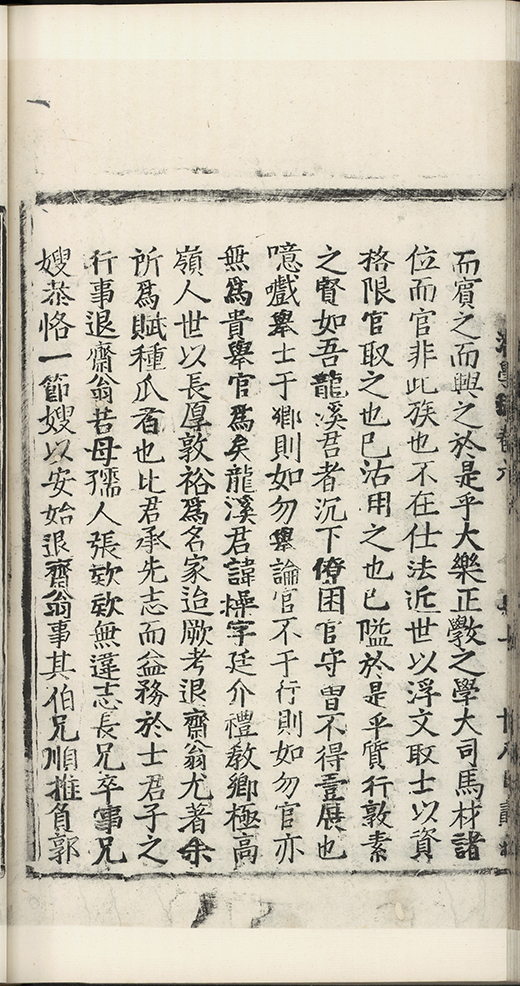 而賓之而興之於是乎大樂正敎之學大司馬材諸
位而官非此族也不在仕法近世以浮文取士以資
格限官取之也已沽用之也已隘於是乎質行敦素
之賢如吾龍溪君者沉下僚困官守曽不得壹展也
噫嚱舉士于鄉則如勿舉論官不于行則如勿官亦
無爲貴舉官爲矣龍溪君諱操字廷介禮敎鄉極高
嶺人世以長厚敦裕爲名家迨厥考退齋翁尤著余
所爲賦種瓜者也比君承先志而益務於士君子之
行事退齋翁若母孺人張欵欵無違志長兄卒事兄
嫂恭恪一節嫂以安始退齋翁事其伯兄順推負郭